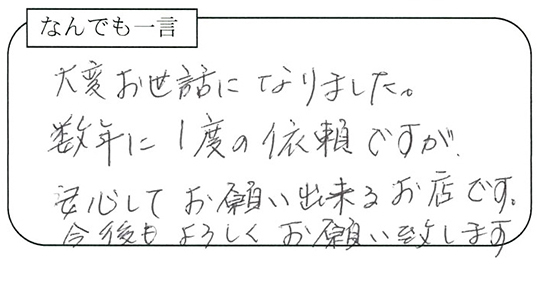 なんでも一言
大変お世話になりました。
数年に1度の依頼ですが、
安心してお願い出来るお店です。
今後もよろしくお願い致します